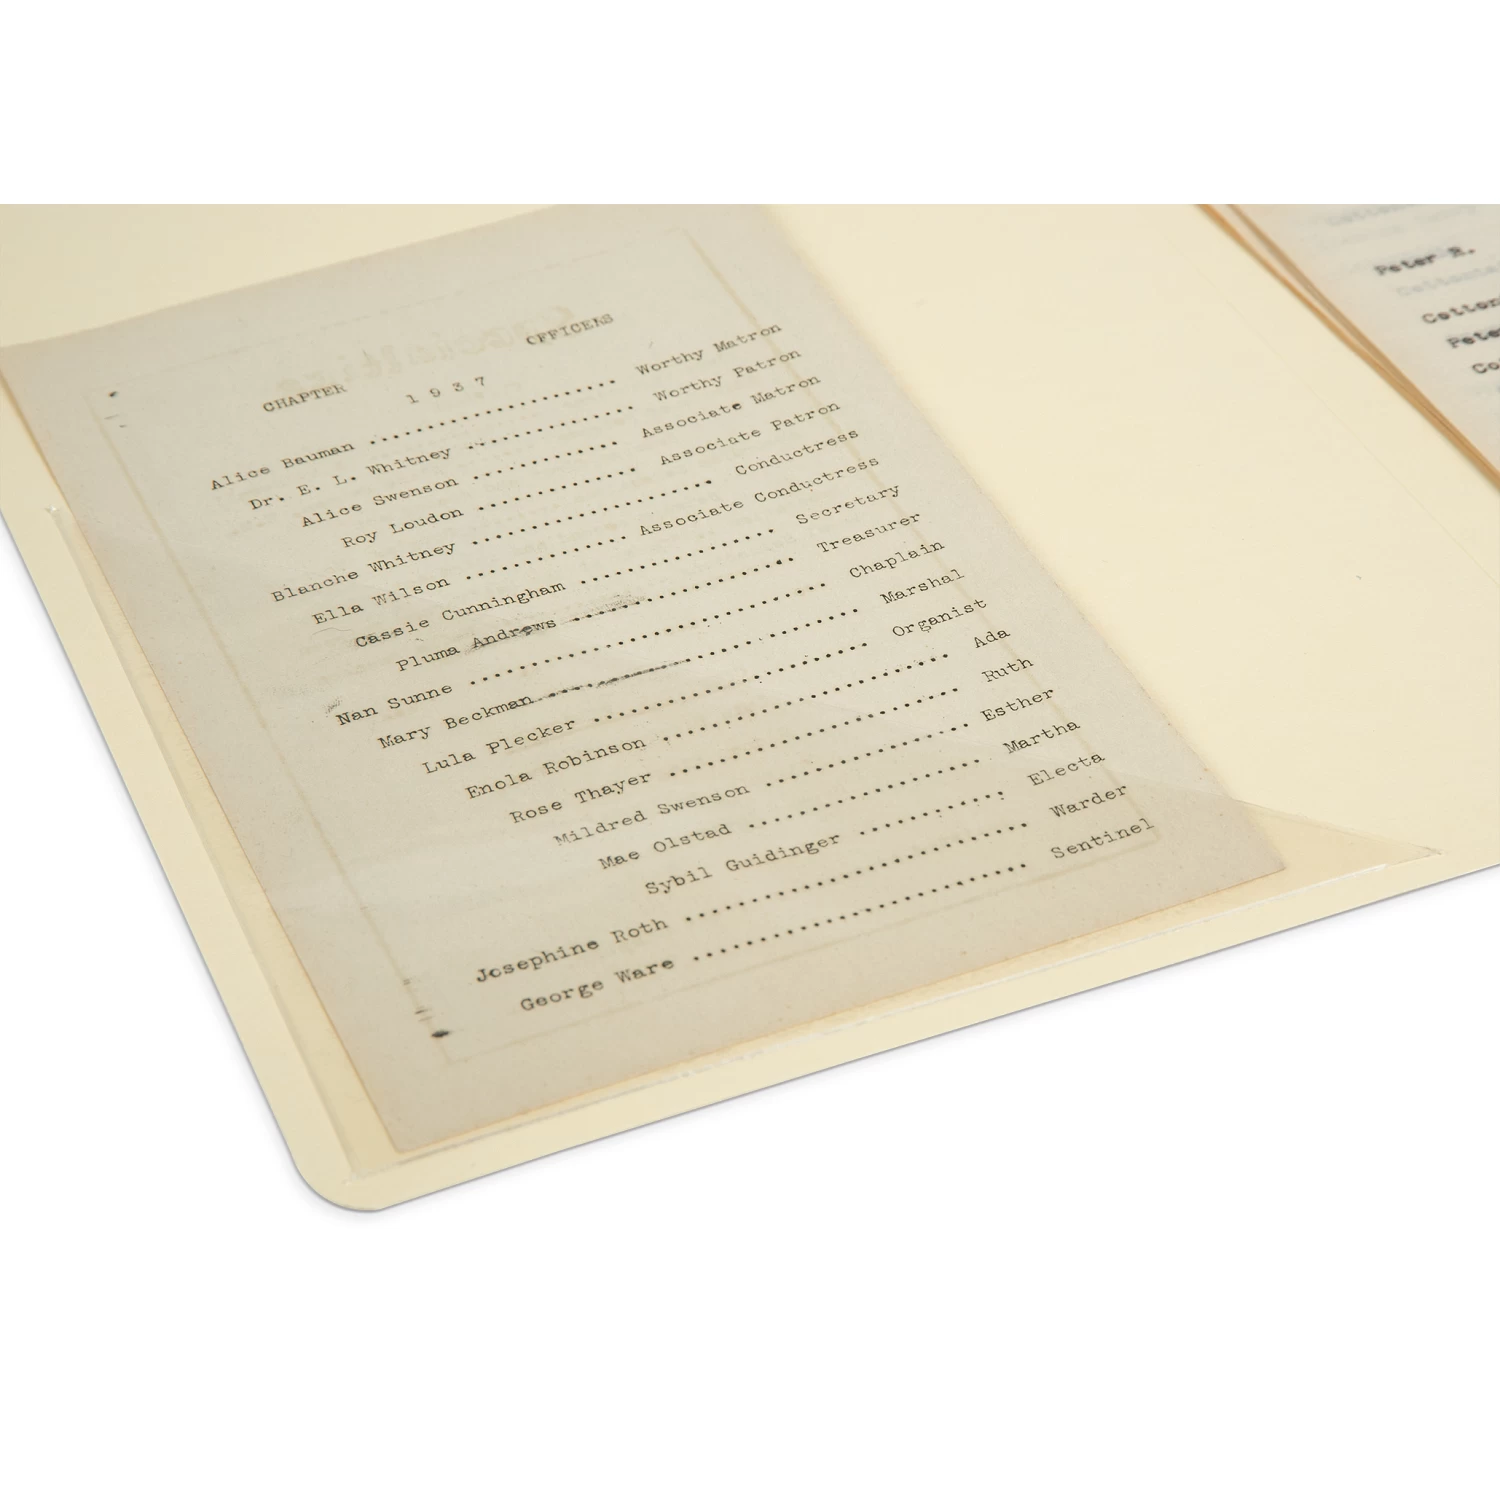 CHAPTER OFFICERS
1 9 3 7
Alice Bauman ...................... Worthy Matron
Dr. E. L. Whitney ............... Worthy Patron
Alice Swenson ............. Associate Matron
Roy Loudon .............. Associate Patron
Blanche Whitney ..................... Conductress
Ella Wilson .............. Associate Conductress
Cassie Cunningham ................. Secretary
Pluma Andrews ................... Treasurer
Nan Sunne .............................. Chaplain
Mary Beckman .......................... Marshal
Lula Plecker ....................... Organist
Enola Robinson ........................ Ada
Rose Thayer ........................ Ruth
Mildred Swenson ................. Esther
Mae Olstad ................... Martha
Sybil Guidinger ............ Electa
Josephine Roth ............................ Warder
George Ware ........................... Sentinel
Peter R.